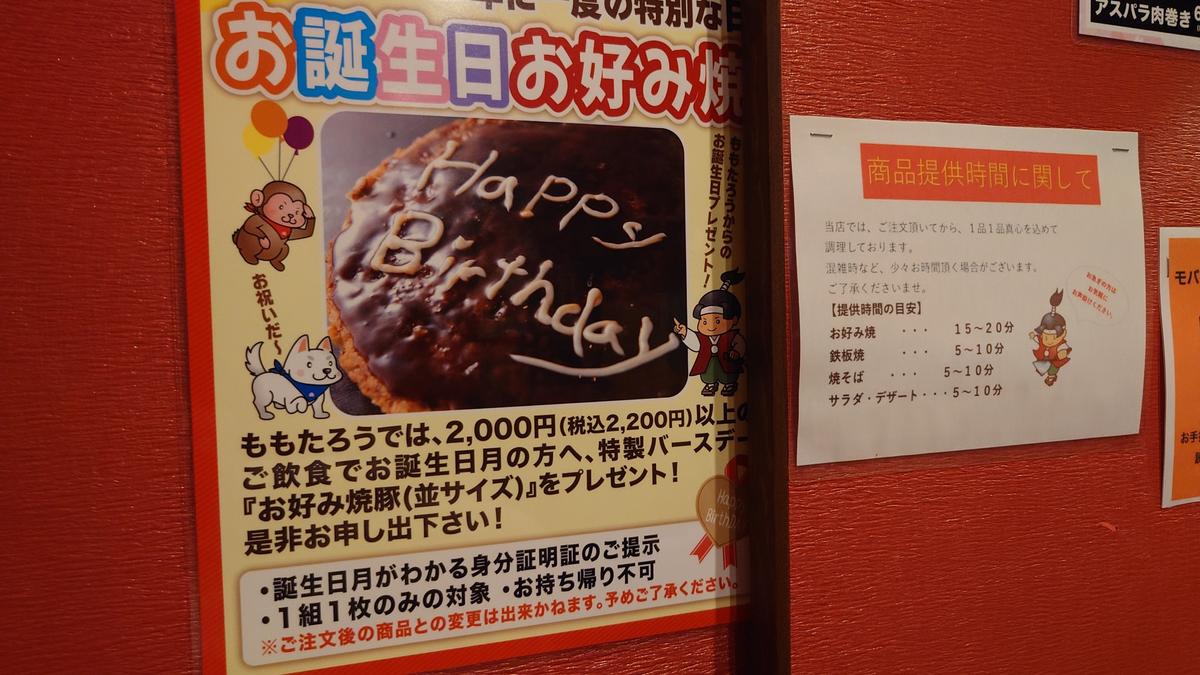 年に一度の特別な日
お誕生日お好み焼
ももたろうからの
お誕生日プレゼント!
Happy
Birthday
お祝いだ〜
ももたろうでは、2,000円(税込2,200円)以上の
ご飲食でお誕生日月の方へ、特製バースデー
『お好み焼豚(並サイズ)』をプレゼント!
是非お申し出下さい!
Happy
Birthday
・誕生日月がわかる身分証明証のご提示
・1組1枚のみの対象 ・お持ち帰り不可
※ご注文後の商品との変更は出来かねます。予めご了承ください。
商品提供時間に関して
当店では、ご注文頂いてから、1品1品真心を込めて
調理しております。
混雑時など、少々お時間頂く場合がございます。
ご了承くださいませ。
お急ぎの方は
お気軽に
お声掛けください。
【提供時間の目安】
お好み焼 ・・・ 15~20分
鉄板焼 ・・・ 5~10分
焼そば ・・・ 5~10分
サラダ・デザート・・・5~10分
アスパラ肉巻き
モバ
お手